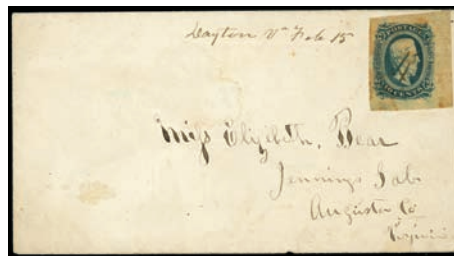 Dayton Va Feb 15
POSTAGE
TEN CENTS
Miss Elizabeth. Bear
Jennings Gab
Augusta Co
Virginia